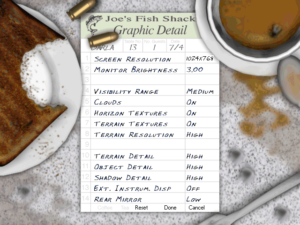 Joe's Fish Shack
Graphic Detail
13 1 7/4
Screen Resolution 1024x768
Monitor Brightness 3.00
Visibility Range Medium
Clouds On
Horizon Textures On
Terrain Textures On
Terrain Resolution High
Terrain Detail High
Object Detail High
Shadow Detail High
Ext. Instrum. Disp Off
Rear Mirror Low
Reset Done Cancel